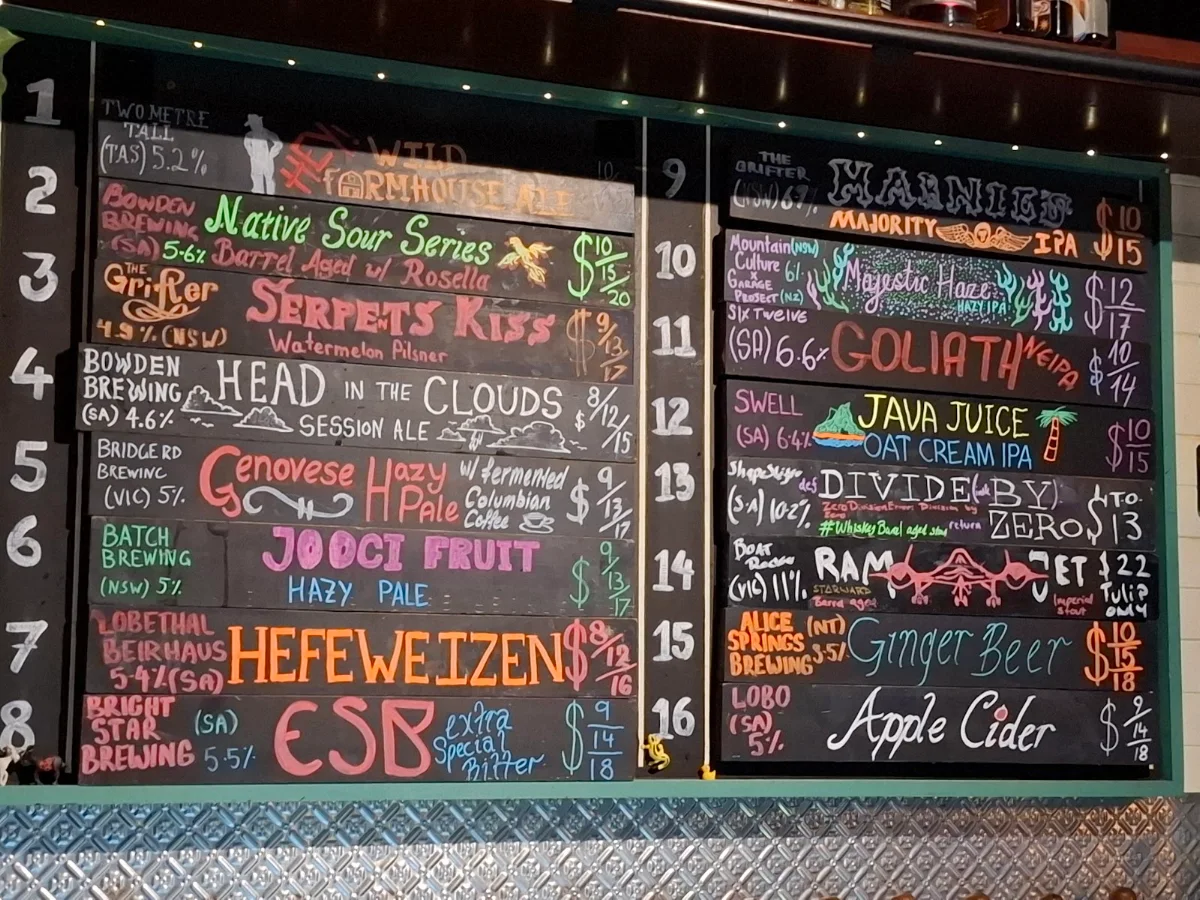 1
TWO METRE
TALL
(TAS) 5.2%
WILD
FARMHOUSE ALE
2
BOWDEN
BREWING
(SA) 5.6%
Native Sour Series
Barrel Aged w/ Rosella
$10/15/20
3
THE
Grifter
4.9% (NSW)
SERPETS KISS
N
Watermelon Pilsner
$9/13/17
4
BOWDEN
BREWING
(SA) 4.6%
HEAD IN THE CLOUDS
SESSION ALE
$8/12/15
5
BRIDGE RD
BREWING
(VIC) 5%
Genovese Hazy
Pale
w/ fermented
Columbian
Coffee
$9/13/17
6
BATCH
BREWING
(NSW) 5%
JOOCI FRUIT
HAZY PALE
$9/13/17
7
LOBETHAL
BEIRHAUS
5.4% (SA)
HEFEWEIZEN
$8/12/16
8
BRIGHT
STAR
BREWING
(SA)
5.5%
ESB
extra
Special
Bitter
$9/14/18
9
THE
GRIFTER
(NSW) 6%
MAJORITY IPA
$10/15
10
Mountain (NSW)
Culture 6%
x
GARAGE
PROJECT (NZ)
Majestic Haze
HAZY IPA
$12/17
11
SIX Twelve
(SA) 6.6%
GOLIATH NEIPA
$10/14
12
SWELL
(SA) 6.4%
JAVA JUICE
OAT CREAM IPA
$10/15
13
(SA) 10.2%
def DIVIDE BY
ZeroDivisionError: Division by
Zero
#Whiskey Barrel aged stout
return
ZERO
$13
14
BOAT
Rocker
(VIC) 11%
RAM JET
STARWARD
Barrel aged
Imperial
stout
$22
Tulip
only
15
ALICE
SPRINGS
BREWING
(NT)
3.5%
Ginger Beer
$10/15/18
16
LOBO
(SA)
5%
Apple Cider
$9/14/18